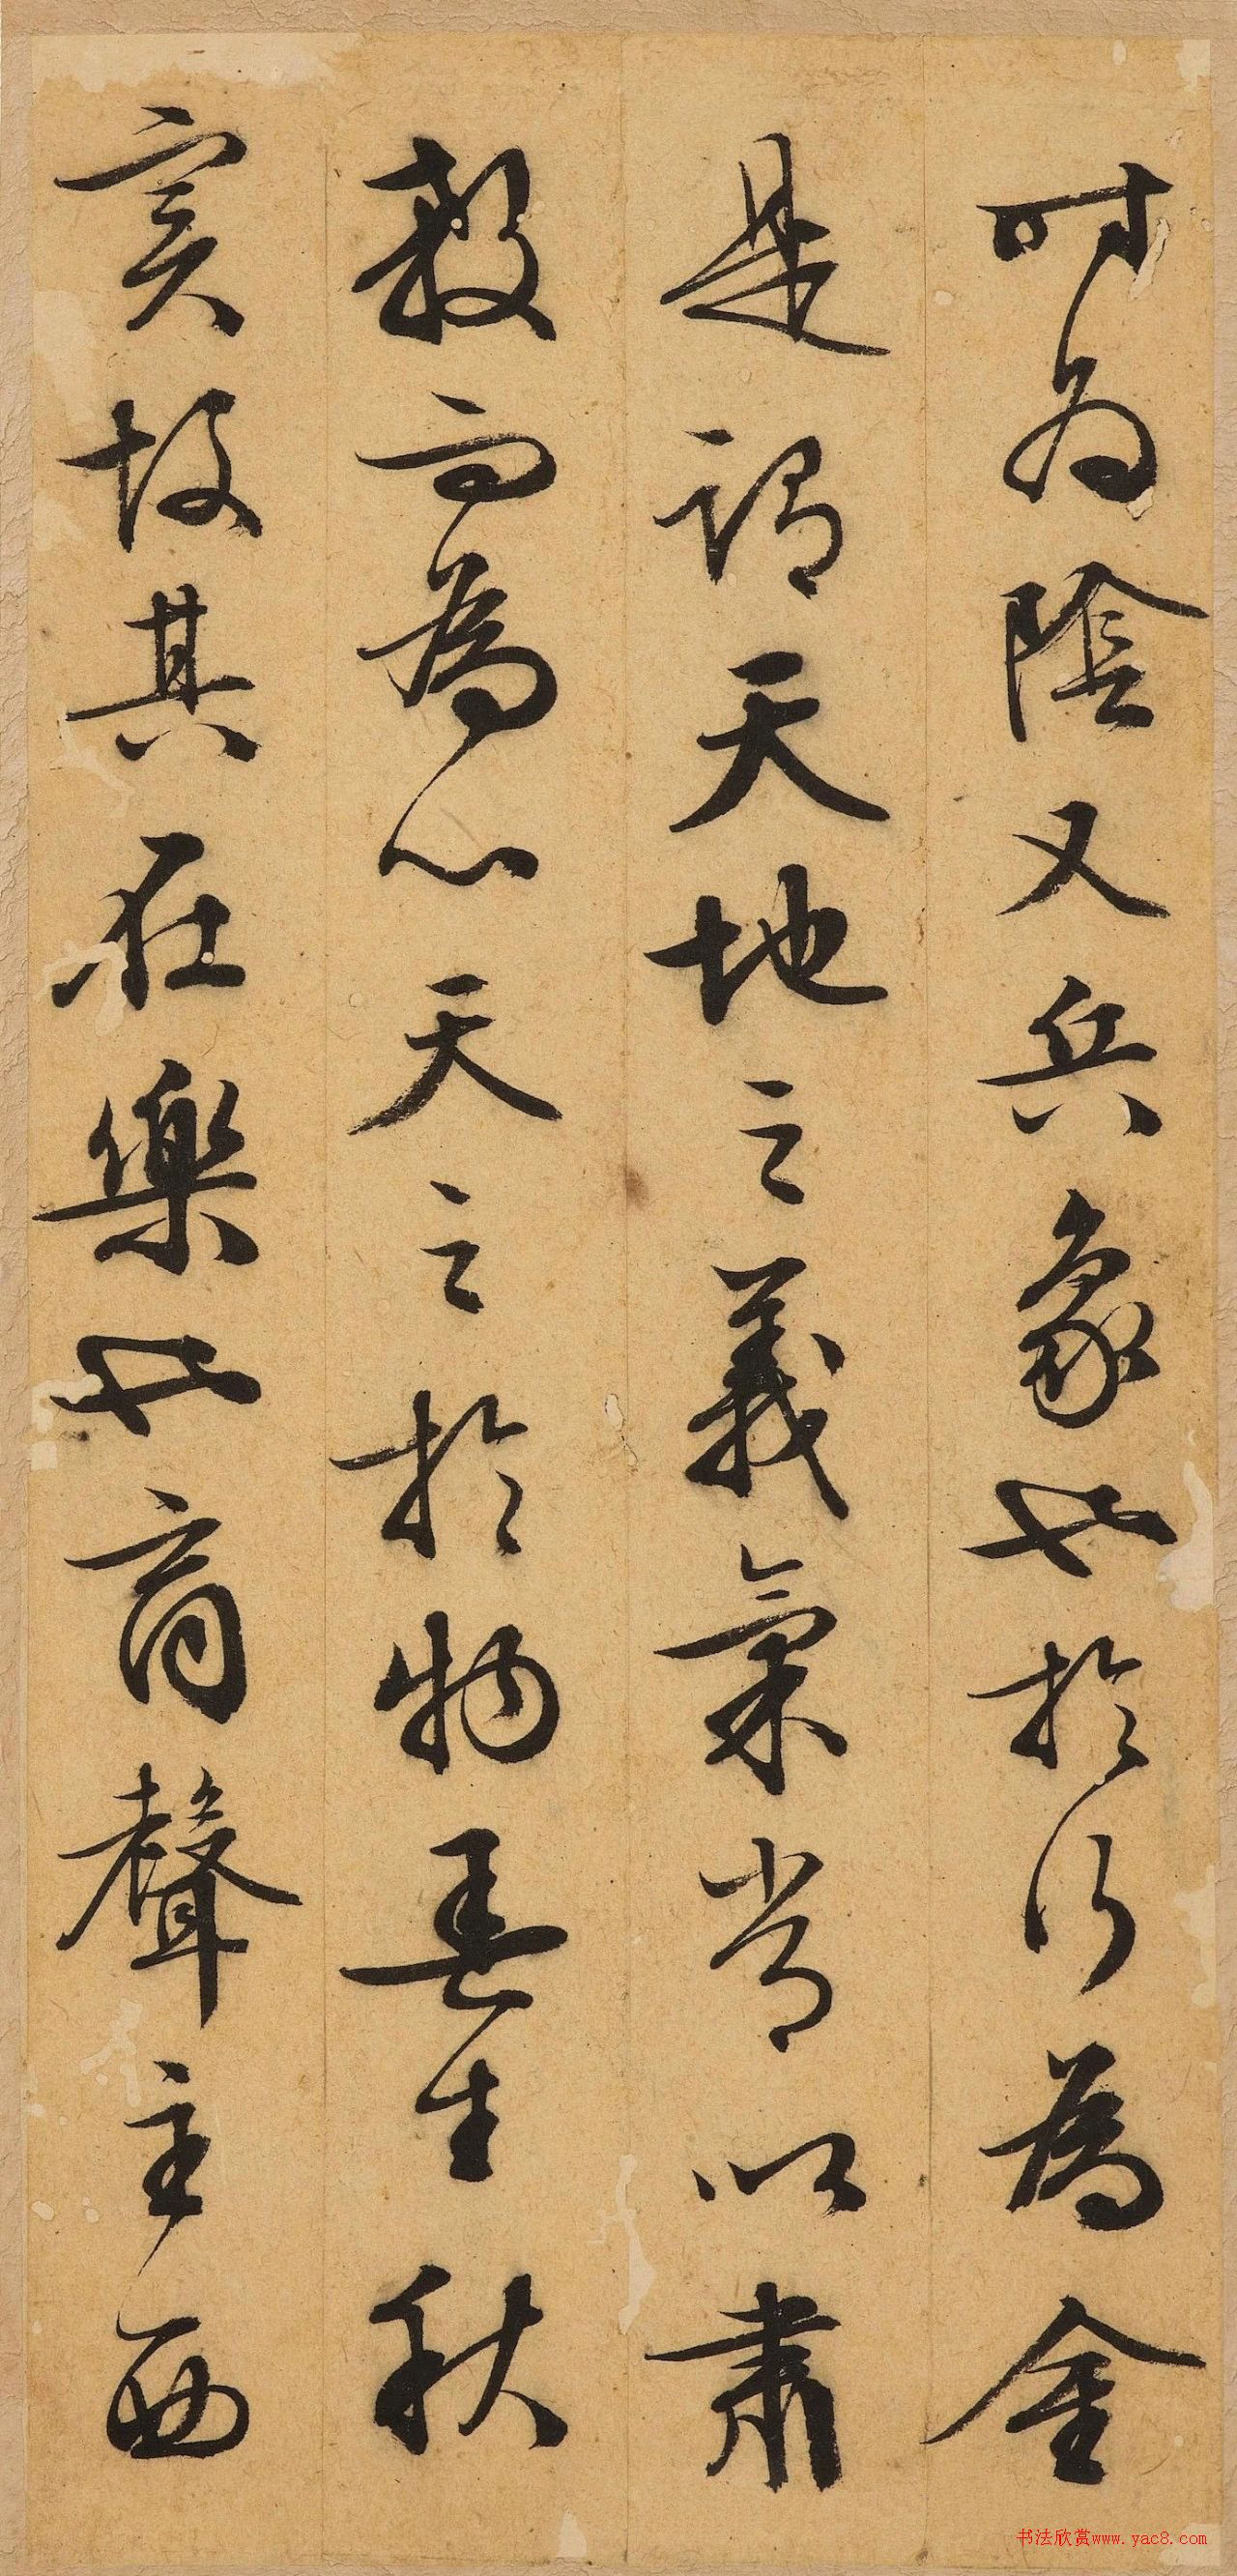 时為陰又兵象也於行為金
是謂天地之義氣常以肅
殺而為心天之於物春生秋
實故其在樂也商聲主西
书法欣赏www.yac8.com